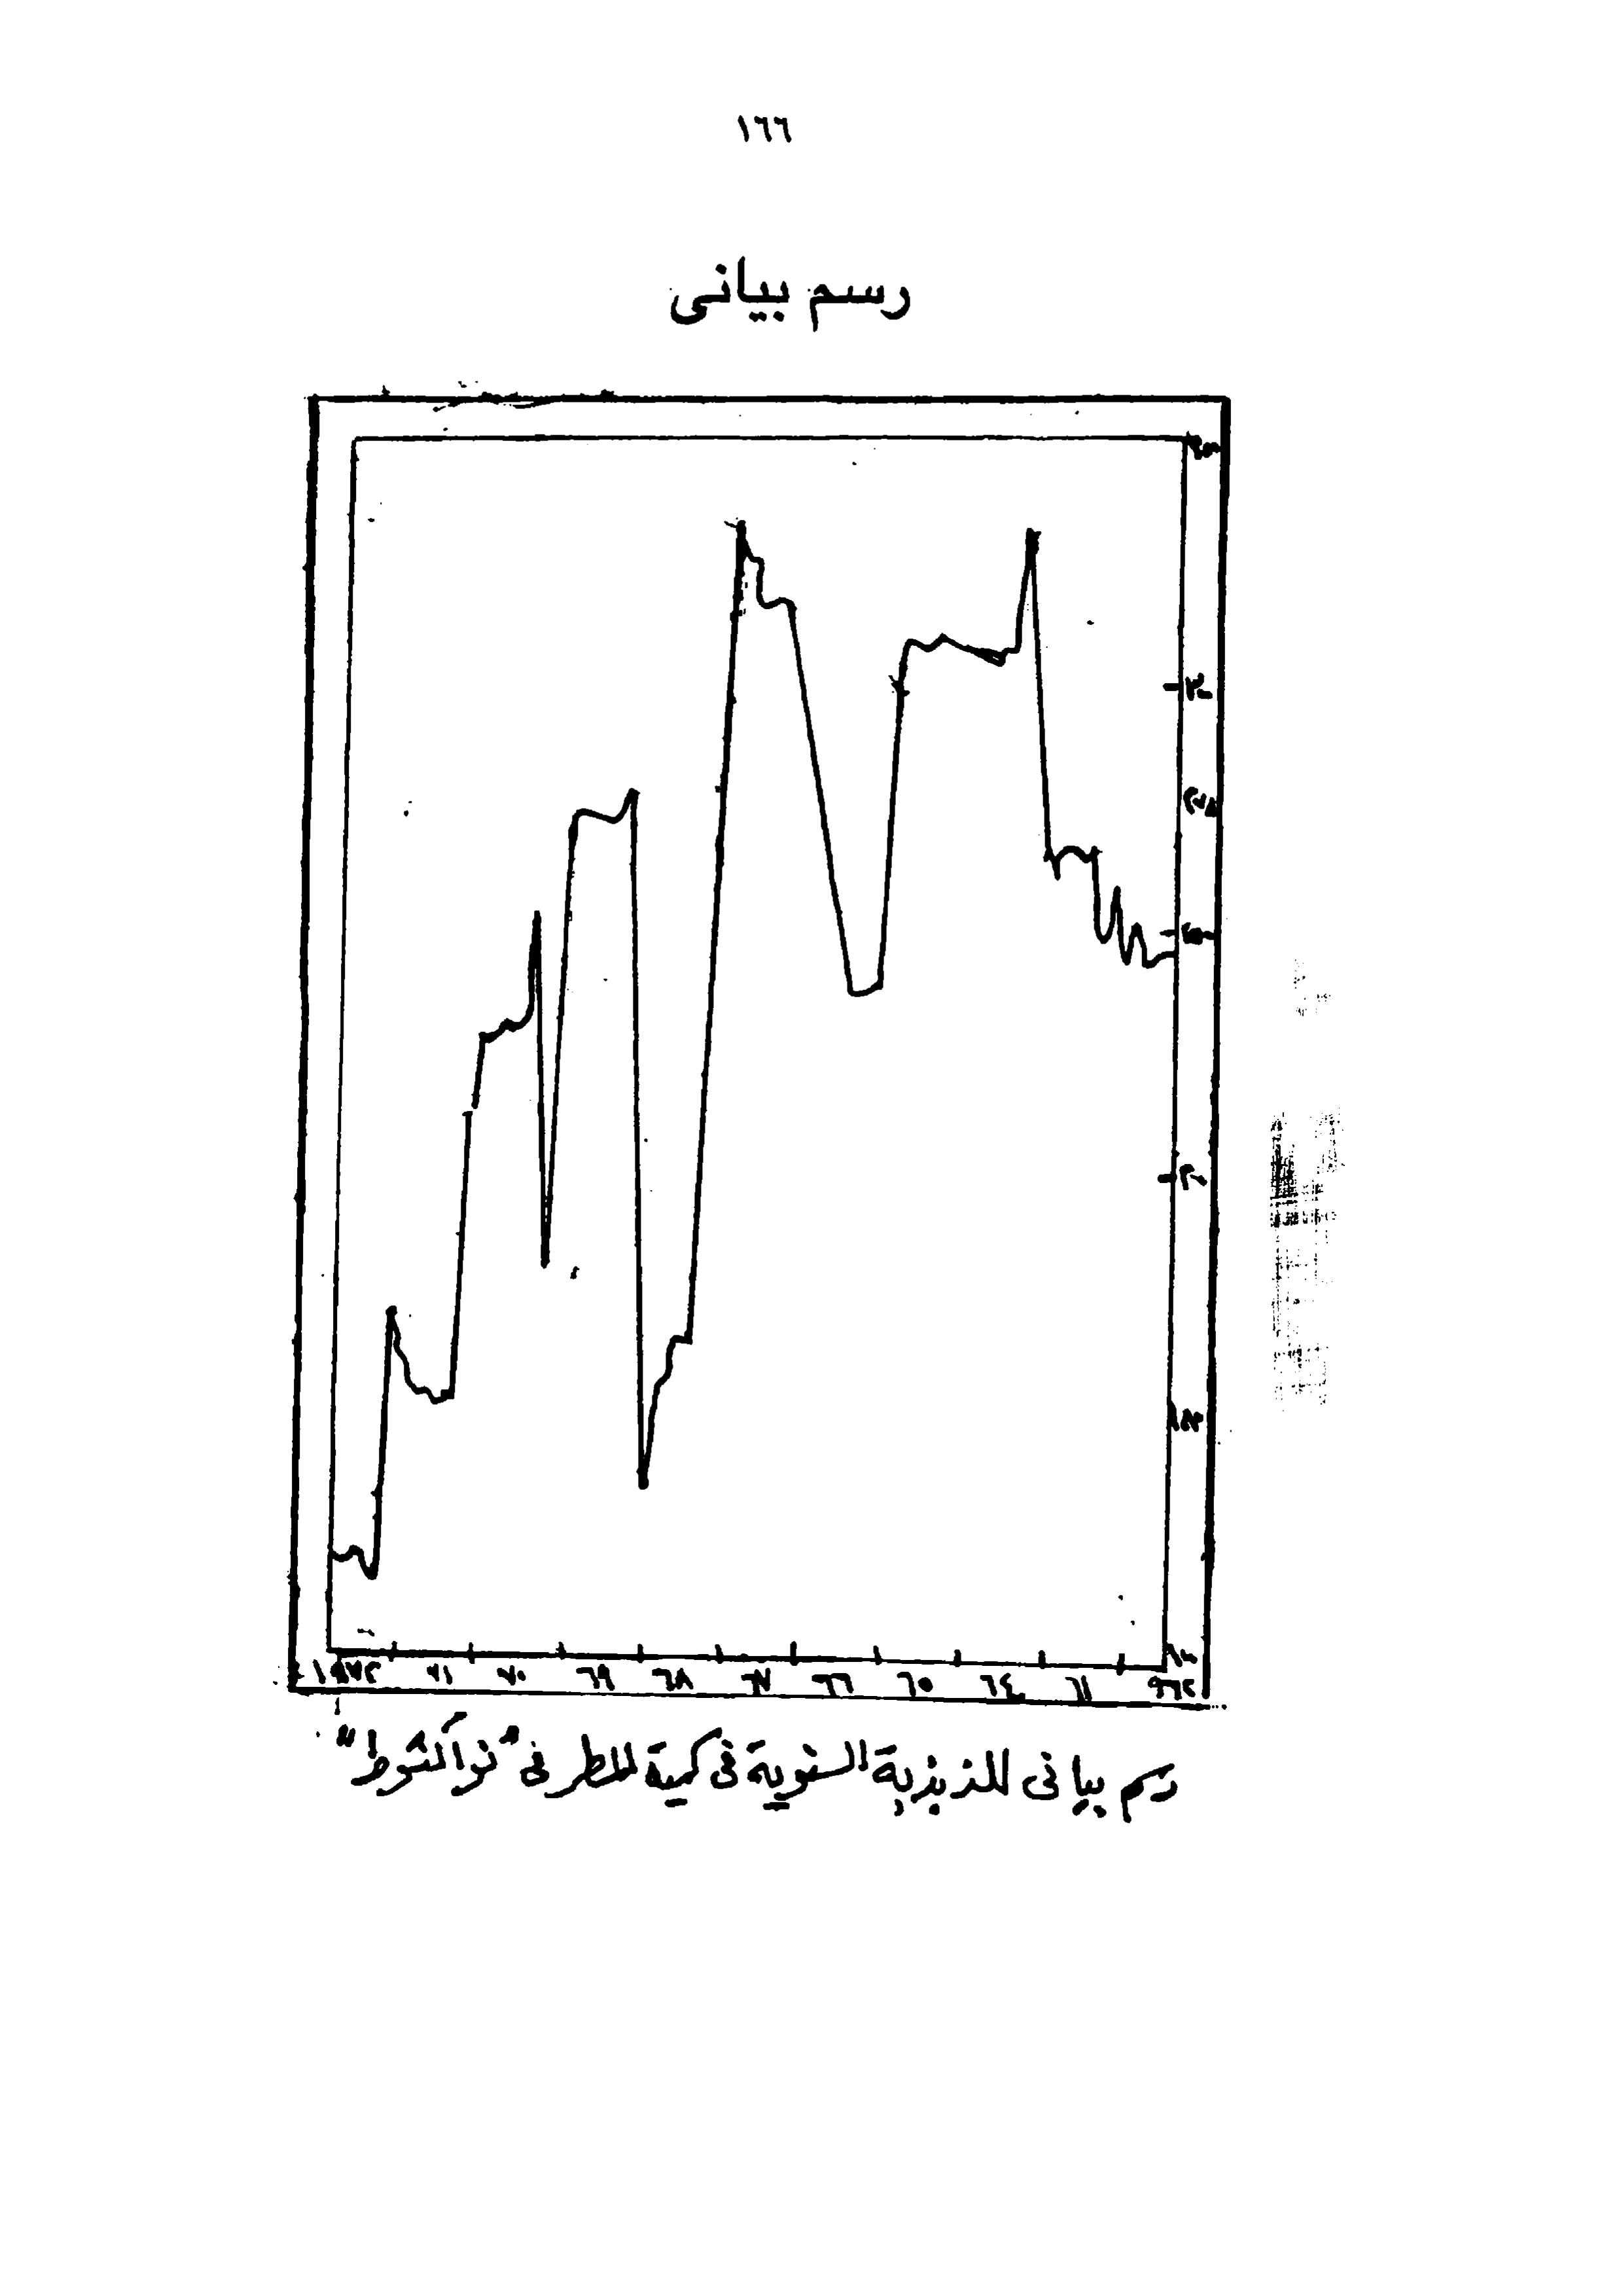 ١٦٦
رسم بيانى
٣٠
٢٠
١٩٧٢ ٧١ ٧٠ ٦٩ ٦٨ ٦٧ ٦٦ ٦٥ ٦٤ ٦١ ٩٦٢
رسم بيانى للذبذبة السنوية فى كمية المطر فى "نواكشوط"